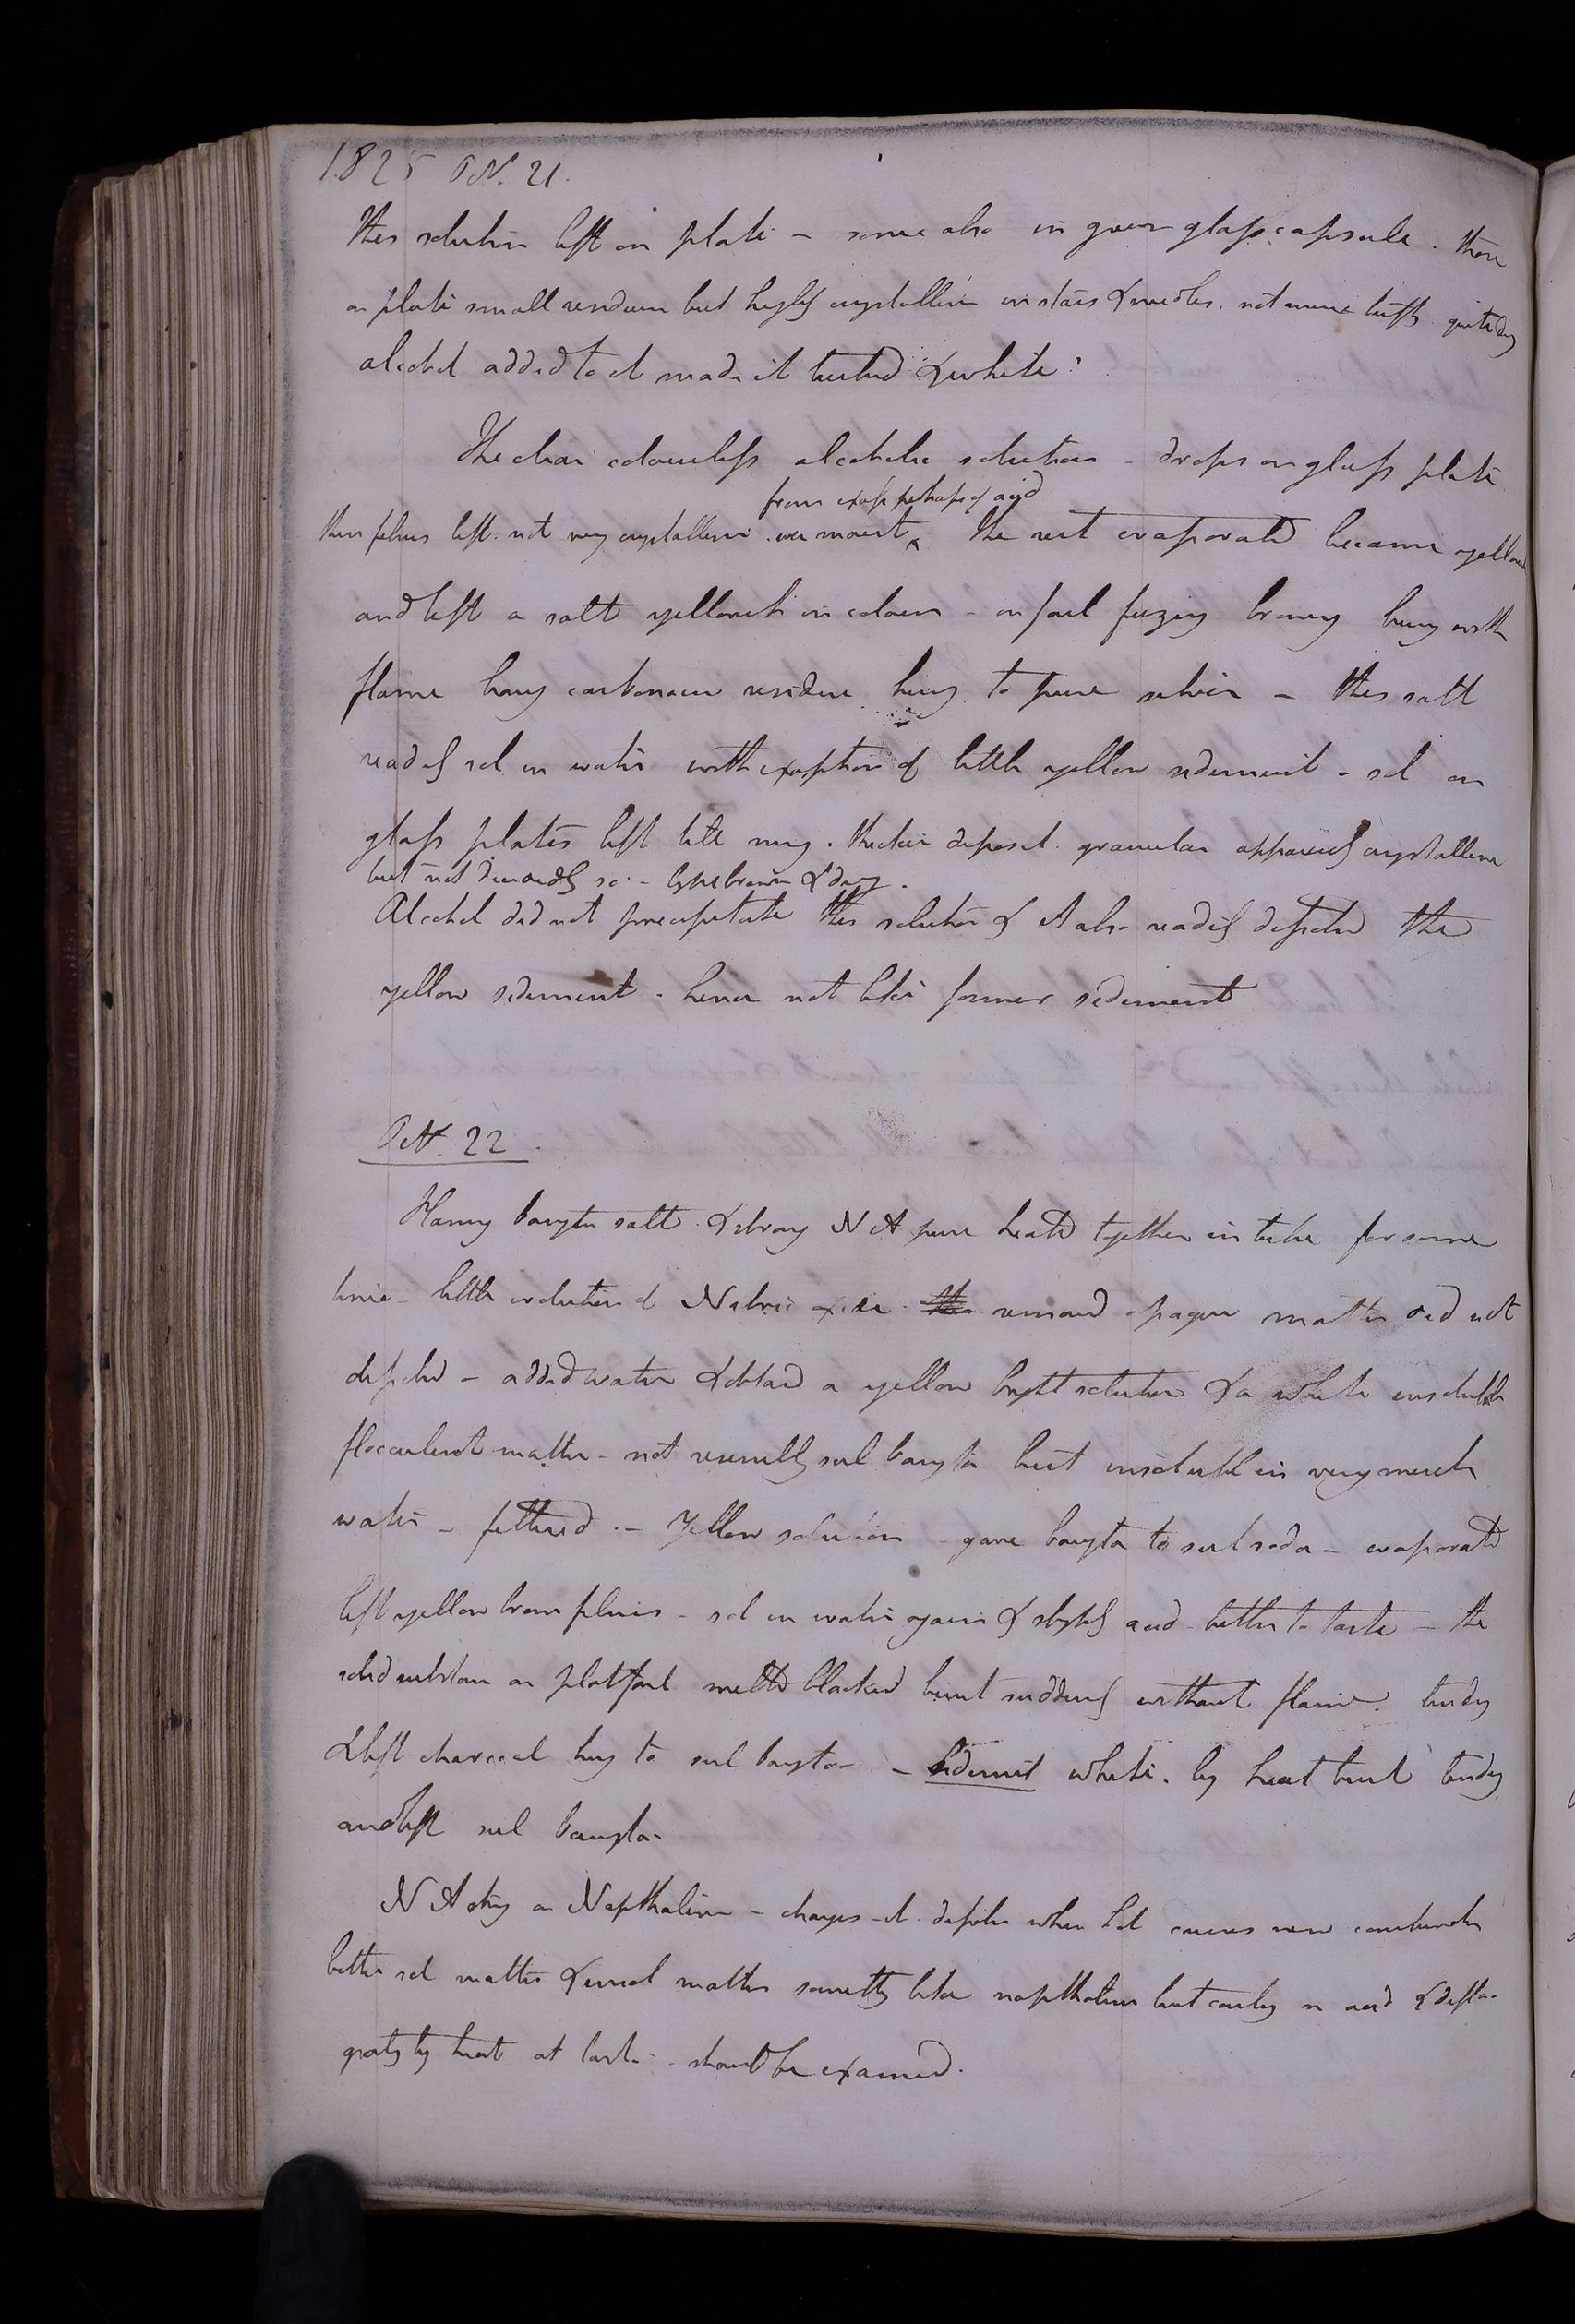 1825 Oct. 21.
This solution left on plate - some also in green glass capsule. there
on plate small residuum but highly crystalline in stars & needles. not in tufts quite dry
alcohol added to it made it turbid & white:
The clear colourless alcoholic solution - drops on glass plate
from excess perhaps of acid
thin films left. not very crystalline. were moist ^ The rest evaporated became yellow
and left a salt yellowish in colour - on foil fuzing browng burng with
flame leavg carbonaceous residue burng to pure silver - this salt
readily sol in water with exception of little yellow sediment - sol on
glass plates left little ring. thicker deposit granular apparently crystalline
but not decidedly so - light brown & dry.
Alcohol did not precipitate this solution & it also readily dissolvd the
yellow sediment - hence not like former sediment
Oct. 22.
Having baryta salt & strong N A pure heated together in tube for some
time - little evolution of Nitric oxide remaind opaque matter did not
dissolve - added water & obtaind a yellow bright solution & a white insoluble
flocculent matter - not resembling sul baryta but insoluble in very much
water - filtered. - Yellow solution - gave baryta to sul soda - evaporated
left yellow brown films - sol in water again & slightly acid - bitter to taste - the
solid substance on plat foil melted blackend burnt suddenly without flame.
& left charcoal burng to sul baryta - Sediment white. by heat burnt
and left sul baryta
N A actg on Napthaline - changes it. dissolves when hot causes new combinatn
bitter sol matter & insol matter somethg like napthaline but containg n acid & defla-
grating by heat at last - should be examined.